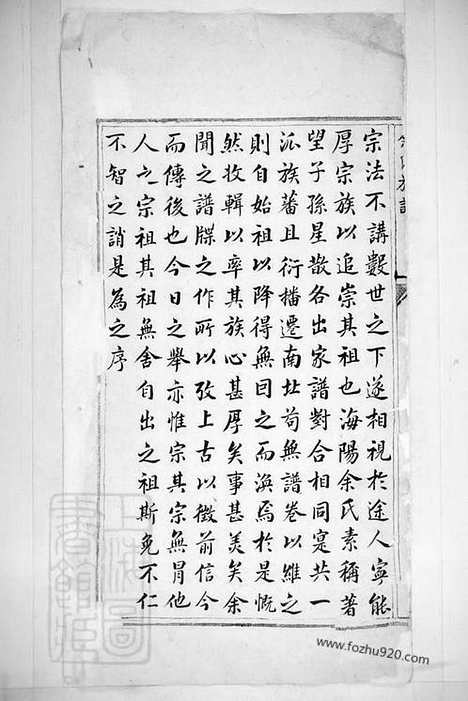 宗法不講數世之下遂相視於途人寧能
厚宗族以追崇其祖也海陽余氏素稱著
望子孫星散各出家譜對合相同寔共一
派族蕃且衍播遷南北苟無譜卷以維之
則自始祖以降得無因之而渙焉於是慨
然收輯以率其族心甚厚矣事甚美矣余
聞之譜牒之作所以攷上古以徵前信今
而傳後也今日之舉亦惟宗其宗無冒他
人之宗祖其祖無舍自出之祖斯免不仁
不智之誚是為之序
www.fozhu920.com